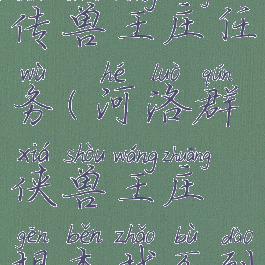 传兽王庄任
wù hé luò qún
务(河洛群
xiá shòu wáng zhuāng
侠兽王庄
gēn běn zhǎo bù dào
根本找不到